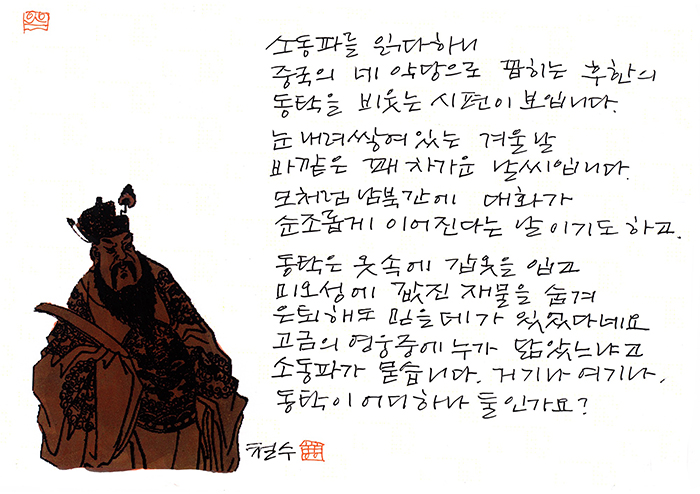 소동파를 읽다하니
중국의 네 악당으로 꼽히는 후한의
동탁을 비웃는 시편이 보입니다.
눈 내려쌓여있는 겨울날
바깥은 꽤 차가운 날씨입니다.
모처럼 남북간에 대화가
순조롭게 이어진다는 날이기도 하고.
동탁은 옷속에 갑옷을 입고
미오성에 값진 재물을 숨겨
은퇴해도 믿을데가 있었다네요
고금의 영웅중에 누가 닮았느냐고
소동파가 묻습니다. 거기나 여기나,
동탁이 어디 하나 둘인가요?
철수